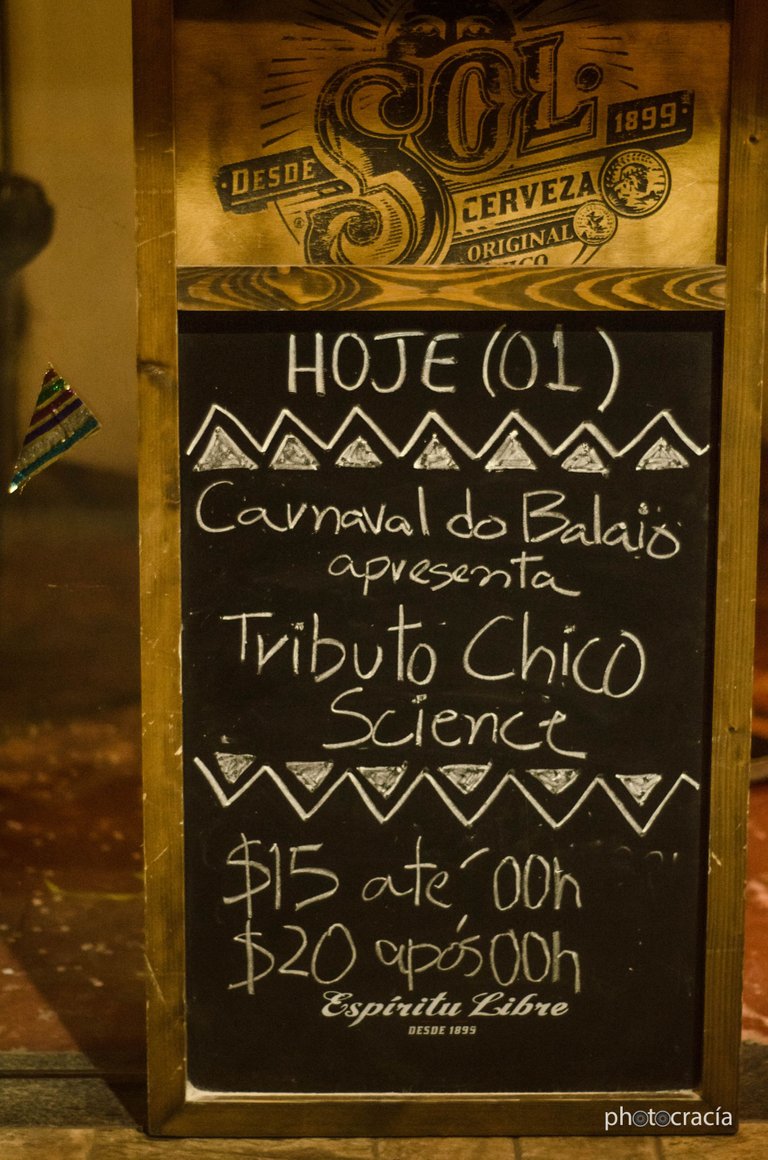 DESDE SOL 1899
CERVEZA
ORIGINAL
HOJE (01)
Carnaval do Balaio
apresenta
Tributo Chico
Science
$15 até 00h
$20 após 00h
Espíritu Libre
DESDE 1899
photocracía